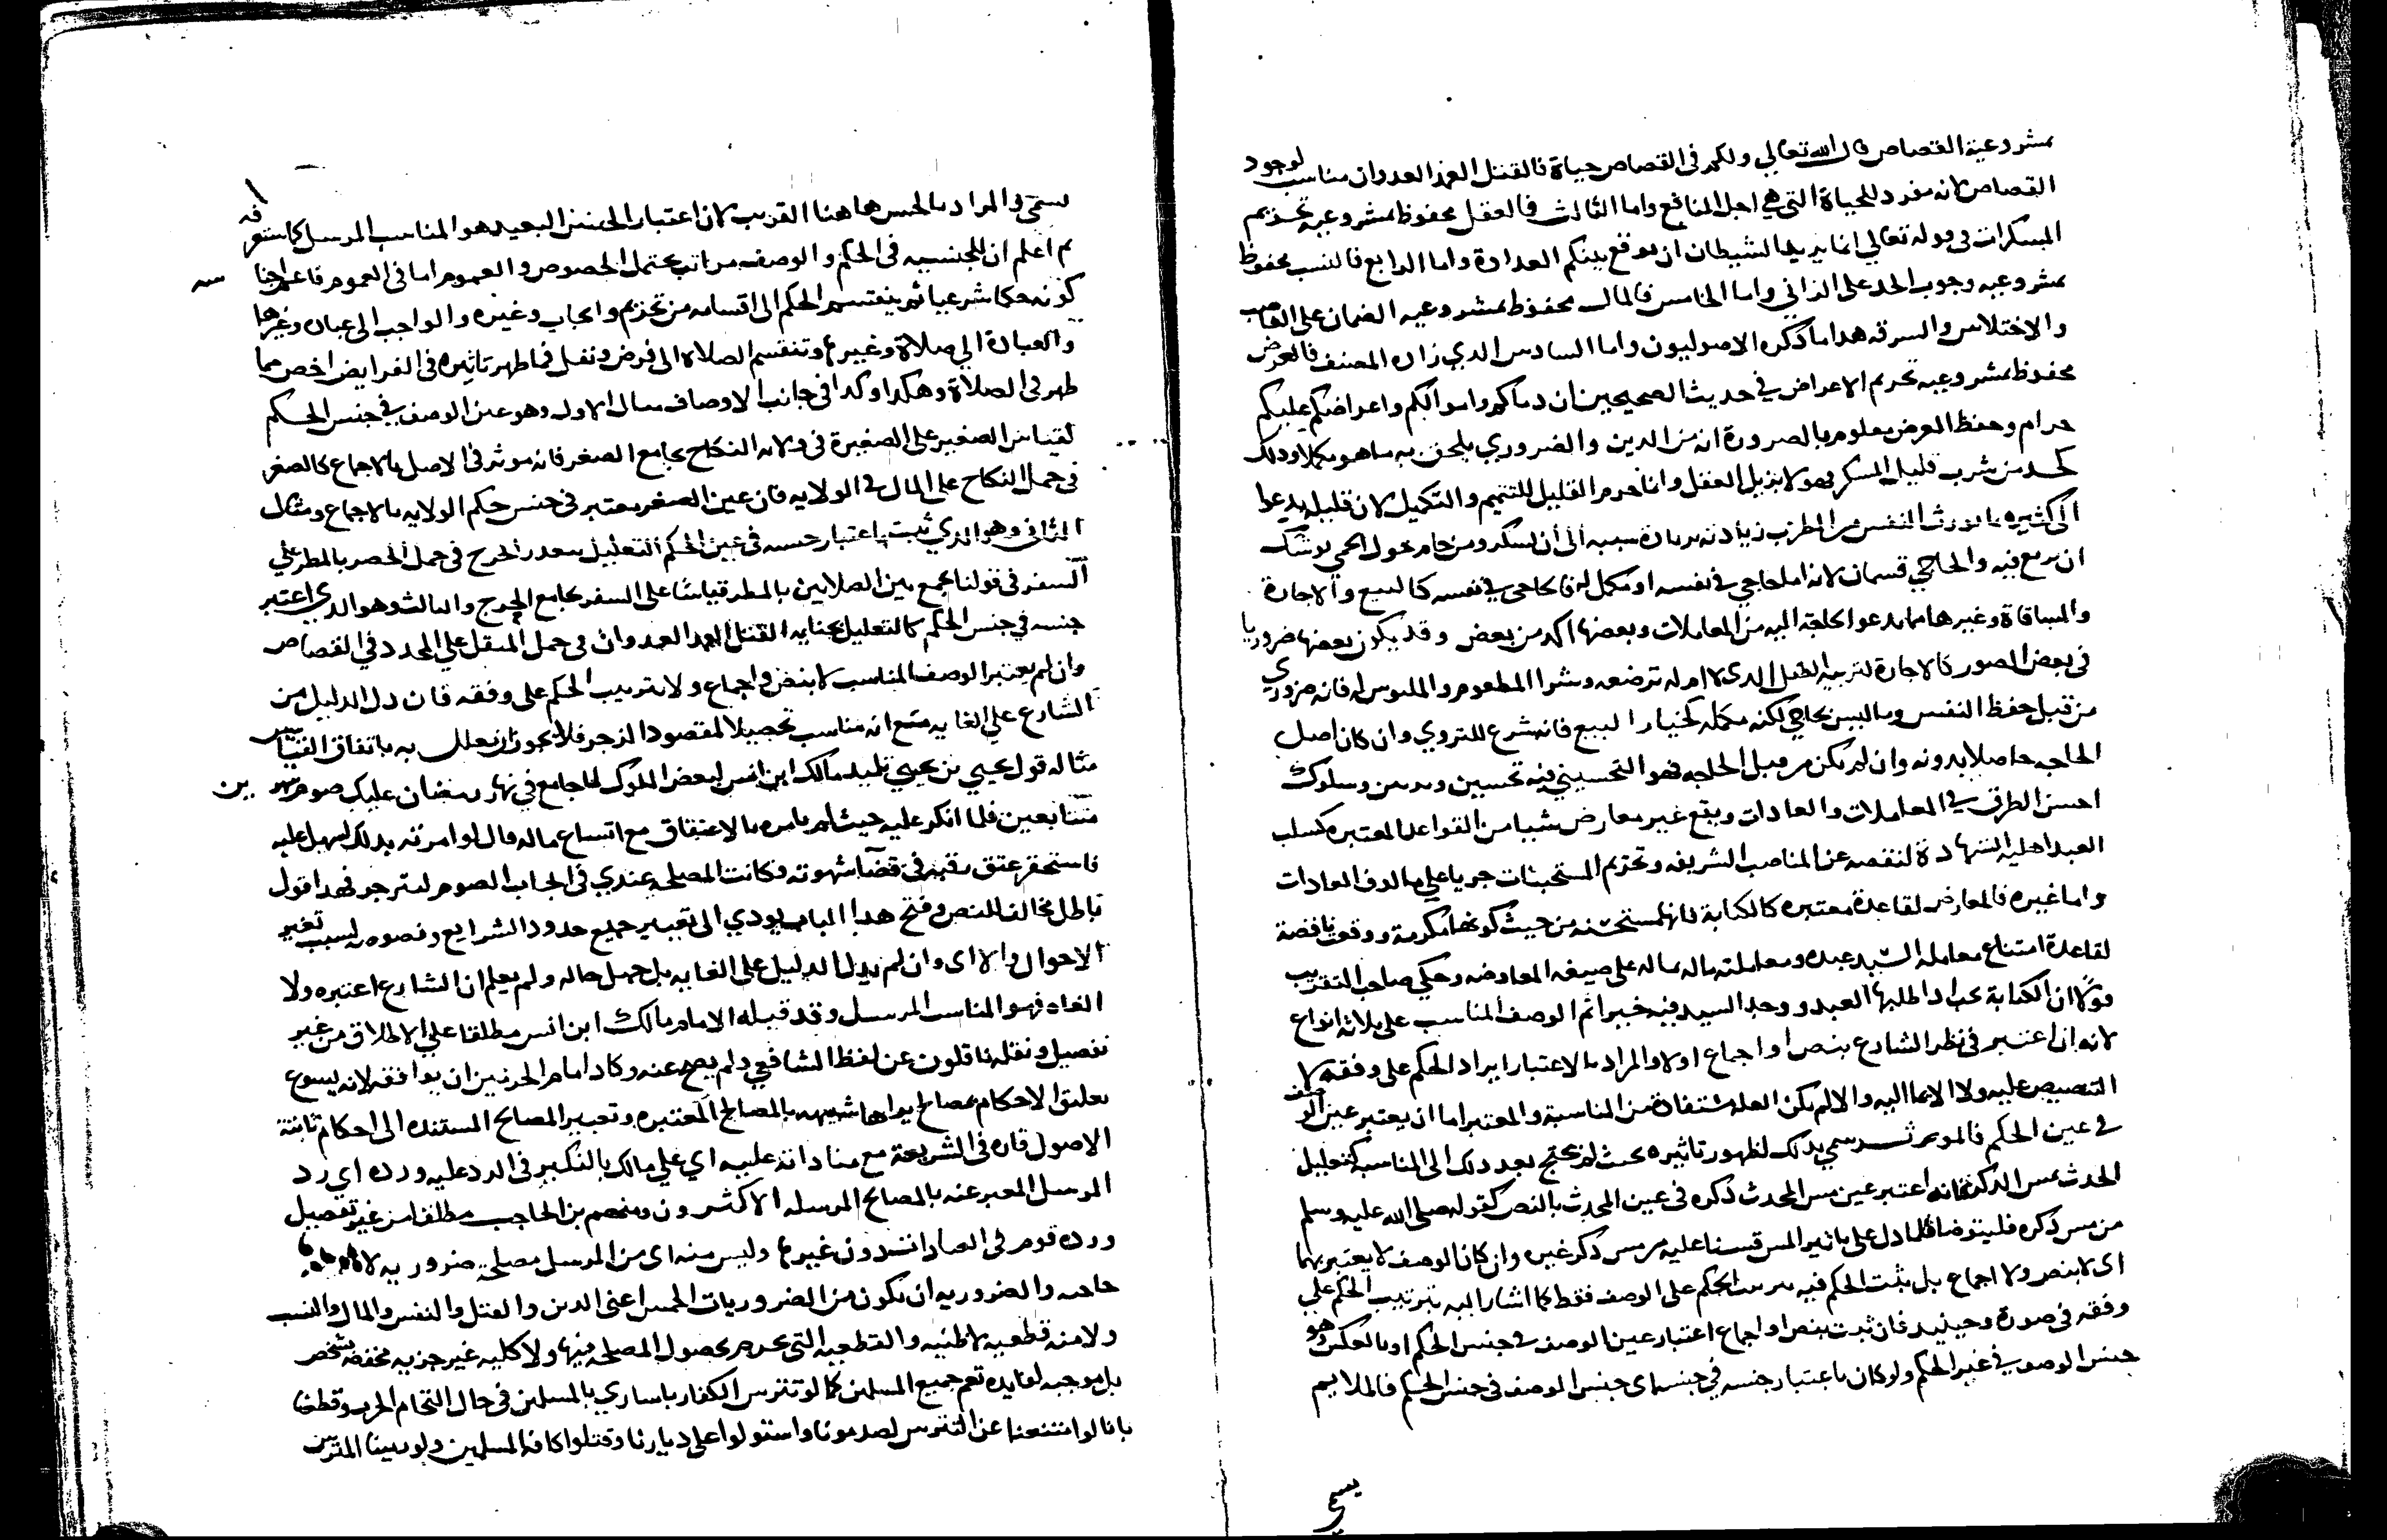 بمشروعية القصاص قال الله تعالي ولكم في القصاص حياة فالقتل العمد العدوان مناسب لوجود
القصاص لانه مفرد للحياة التي هي اجل المنافع واما الثالث فالعقل محفوظ بمشروعيه تحريم
المسكرات في قوله تعالي انما يريد الشيطان ان يوقع بينكم العداوة واما الرابع فالنسب محفوظ
بمشروعيه وجوب الحد على الزاني واما الخامس فالمال محفوظ بمشروعيه الضمان على الغاصب
والاختلاس والسرقه هدا ما ذكره الاصوليون واما السادس الدي زاده المصنف فالعرض
محفوظ بمشروعيه تحريم الاعراض في حديث الصحيحين ان دماكم واموالكم واعراضكم عليكم
حرام وحفظ العرض معلوم بالضرورة انه من الدين والضروري يلحق به ما هو مكملا ودلك
كحد من شرب قليل المسكر فهو لا يزيل العقل وانما حرم القليل للتتميم والتكميل لان قليله يدعوا
الى كثيره بما يورث النفس من الطرب زيادته بزيادة سببه الى ان يسكر ومن حام حول الحمي يوشك
ان يرتع فيه والحاجي قسمان لانه اما حاجي في نفسه او مكمل له فالحاجي في نفسه كالبيع والاجارة
والمساقاة وغيرها مما يدعوا الحاجة اليه من المعاملات وبعضها اكد من بعض وقد يكون بعضها ضروريا
في بعض الصور كالاجارة لتربيه الطفل الدي لا ام له ترضعه وشرا المطعوم والملبوس له فانه ضروري
من قبل حفظ النفس وما ليس بحاجي لكنه مكمله كخيار البيع فانه شرع للتروي وان كان اصل
الحاجه حاصلا بدونه وان لم يكن من قبل الحاجه فهو التحسيني فيه تحسين وتزيين وسلوك
احسن الطرق في المعاملات والعادات ويقع غير معارض شيا من القواعد المعتبره كسلب
العبد اهليه الشهادة لنقصه عن المناصب الشريفه وتحريم المستخبثات جريا على مالوف العادات
واما غيره فالمعارض لقاعدة معتبره كالكتابة فانها مستحسنه من حيث كونها مكرمة ووقعت ناقضة
لقاعدة امتناع معامله السيد عبده ومعاملته ماله بماله على صيغه المعاوضه وحكي صاحب التقريب
قولا ان الكتابة تجب اذا طلبها العبد ووجد السيد فيه خيرا ثم الوصف المناسب على ثلاثة انواع
لانه ان اعتبر في نظر الشارع بنص او اجماع اولا والمراد بالاعتبار ايراد الحكم على وفقه لا
التنصيص عليه ولا الايما اليه والا لم يكن العله مستفادة من المناسبة والمعتبر اما ان يعتبر عين الوصف
في عين الحكم فالموثر سمي بدلك لظهور تاثيره بحيث لم يحتج بعد دلك الى المناسبة كتعليل
الحدث بمس الدكر فانه اعتبر عين مس المحدث ذكره في عين الحدث بالنص كقوله صلى الله عليه وسلم
من مس ذكره فليتوضا فلما دل على تاثير المس قسنا عليه من مس ذكر غيره وان كان الوصف لا يعتبر بهما
اى لا بنص ولا اجماع بل يثبت الحكم فيه بترتيب الحكم على الوصف فقط كما اشار اليه بترتيب الحكم على
وفقه في صورة وحينيد فان ثبت بنص او اجماع اعتبار عين الوصف في جنس الحكم او بالعكس وهو
جنس الوصف في عين الحكم ولو كان باعتبار جنسه في جنسه اى جنس الوصف في جنس الحكم فالملايم
يسمي
يسمى والمراد بالجنس هاهنا القريب لان اعتبار الجنس البعيد هو المناسب المرسل كما ستعرفه
ثم اعلم ان للجنسيه في الحكم والوصف مراتب يحتمل الخصوص والعموم اما في العموم فاعم اجناسه
كونه حكما شرعيا ثم ينقسم الحكم الى اقسامه من تحريم وايجاب وغيره والواجب الى عبادة وغيرها
والعبادة الى صلاة وغيرها وتنقسم الصلاة الى فرض ونفل فما ظهر تاثيره في الفرايض اخص مما
ظهر في الصلاة وهكدا وكدا في جانب الاوصاف مثال الاول وهو عين الوصف في جنس الحكم
لقياس الصغير على الصغيرة في ولاية النكاح بجامع الصغر فانه موثر في الاصل بالاجماع كالصغر
في حمل النكاح على المال في الولايه فان عين الصغر معتبر في جنس حكم الولايه بالاجماع ومثال
الثاني وهو الدي ثبت باعتبار جنسه في عين الحكم التعليل بعدر الحرج في حمل الحضر بالمطر على
السفر في قولنا يجمع بين الصلاتين بالمطر قياسا على السفر بجامع الحرج والثالث وهو الدي اعتبر
جنسه في جنس الحكم كالتعليل بجنايه القتل العمد العدوان في حمل المثقل على المحدد في القصاص
وان لم يعتبر الوصف المناسب لا بنص واجماع ولا بترتيب الحكم على وفقه فان دل الدليل من
الشارع على الغايه مع انه مناسب تحصيلا لمقصود الزجر فلا يجوز ان يعلل به باتفاق القياسين
مثاله قول يحيي بن يحيي تلميد مالك ابن انس لبعض الملوك لما جامع في نهار رمضان عليك صوم شهرين
متتابعين فلما انكر عليه حيث لم يامره بالاعتقاق مع اتساع ماله قال لو امرته بدلك لسهل عليه
فاستحقر عتق رقبه في قضا شهوته وكانت المصلحه عندي في ايجاب الصوم لينزجر فهدا قول
باطل مخالف للنص وفتح هدا الباب يودي الى تغيير جميع حدود الشرايع ونصوصه بسبب تغير
الاحوال والا اى وان لم يدل الدليل على الغايه بل جهل حاله ولم يعلم ان الشارع اعتبره ولا
الغاه فهو المناسب المرسل وقد قبله الامام مالك ابن انس مطلقا على الاطلاق من غير
تفصيل ونقله ناقلون عن لفظ الشافعي ولم يصح عنه وكاد امام الحرمين ان يوافقه لانه يسوع
تعليق الاحكام بمصالح يراها شبيهه بالمصالح المعتبره وتعبير المصالح المستنده الى احكام ثابتة
الاصول قاره في الشريعة مع مناداته عليه اي على مالك بالنكير في الرد عليه ورده اى رد
المرسل المعبر عنه بالمصالح المرسله الاكثرون ومنهم بن الحاجب مطلقا من غير تفصيل
ورده قوم في العبادات دون غيرها وليس منه اى من المرسل مصلحة ضروريه لا
حاجيه والضروريه ان تكون من الضروريات الخمس اعني الدين والعقل والنفس والمال والنسب
ولا منه قطعيه لا ظنيه والقطعيه التي تجزم بحصول المصلحه فيها ولا كليه غير جزيه مخصه بشخص
بل موجبه لفايده تعم جميع المسلمين كما لو تترس الكفار باساري بالمسلمين في حال التحام الحرب وقطعنا
بانا لو امتنعنا عن التترس لصدمونا واستولوا على ديارنا وقتلوا كافه المسلمين ولو رمينا الترس